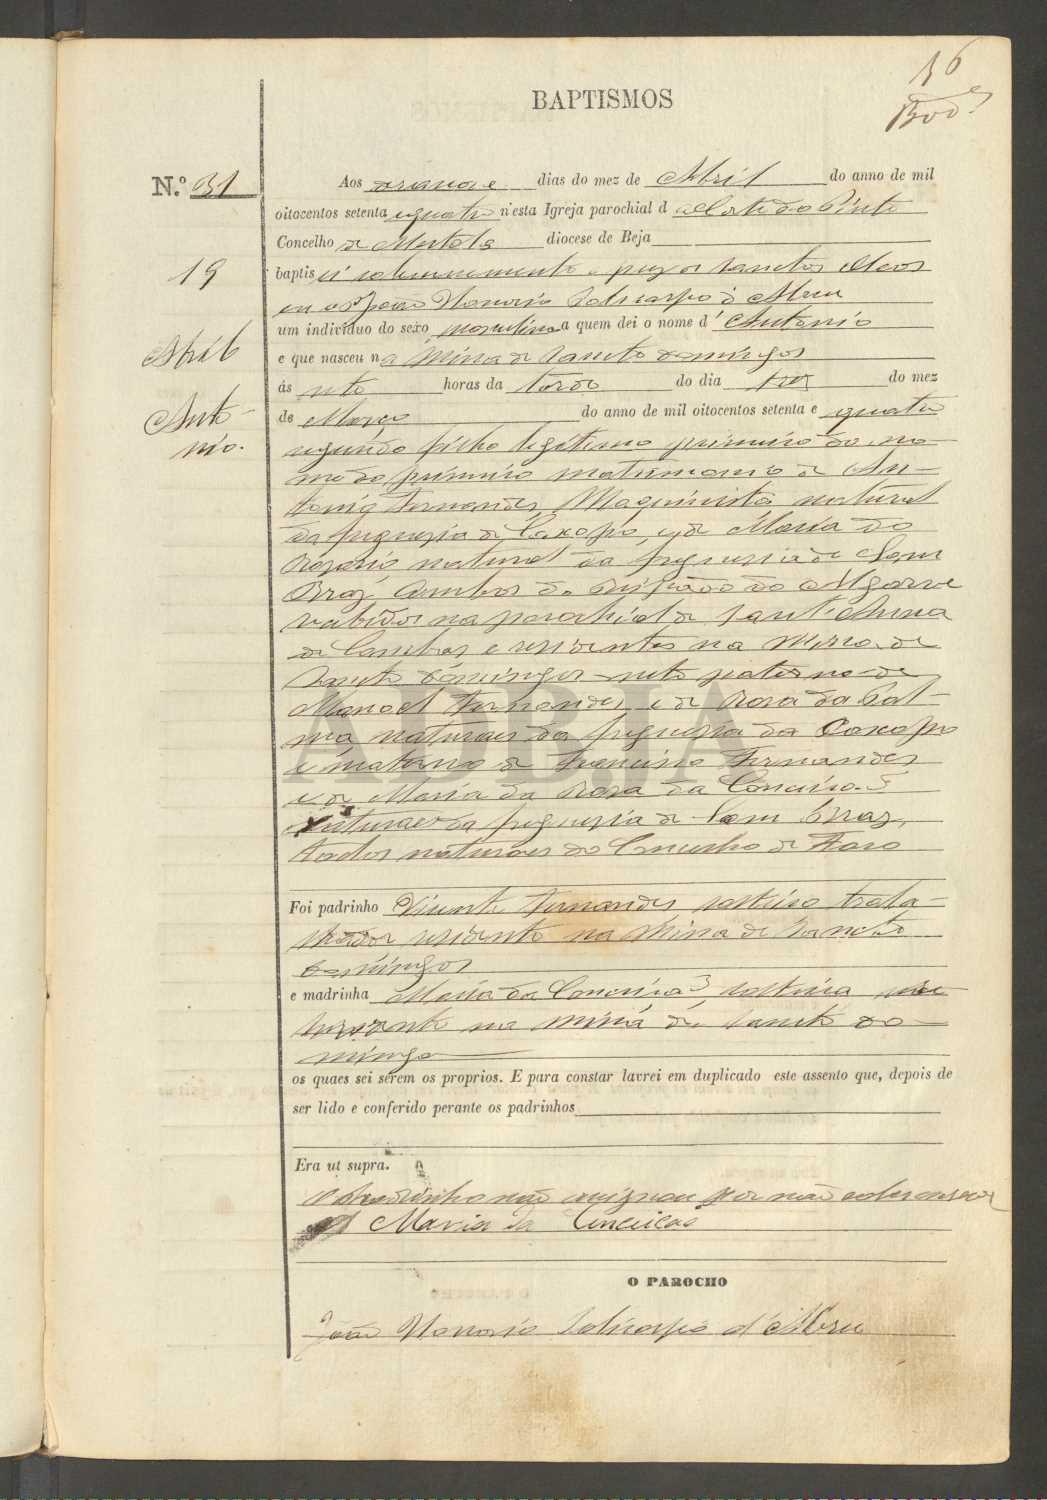 16
BAPTISMOS
N.º 31
Aos dezanove dias do mez de Abril do anno de mil
oitocentos setenta e quatro n'esta Igreja parochial d a Corte do Pinto
Concelho de Mertola diocese de Beja
19
baptisei solemnemente e puz os sanctos oleos
eu o Pe João Honorio Policarpo d'Abreu
um individuo do sexo masculino a quem dei o nome d' Antonio
Abril
e que nasceu na Mina de Sancto Domingos
ás oito horas da tarde do dia tres do mez
Anto-
nio.
de Março do anno de mil oitocentos setenta e quatro
segundo filho legitimo primeiro do no-
me do primeiro matrimonio de An-
tonio Fernandes, Maquinista natural
da freguezia de Caxopo, e de Maria do
Rosario natural da freguezia de Sam
Braz, ambos do Bispado do Algarve
recebidos na parochial de Sant'Anna
de Cambas, e residentes na Mina de
Sancto Domingos neto paterno de
Manoel Fernandes, e de Rosa da Pal-
ma naturaes da freguezia da Caxopo
e materno de Francisco Fernandes
e de Maria da Rosa da Conceição
naturaes da freguezia de Sam Braz,
todos naturaes do Concelho de Faro
Foi padrinho Vicente Fernandes solteiro traba-
lhador residente na Mina de Sancto
Domingos
e madrinha Maria da Conceição, solteira
residente na Mina de Sancto Do-
mingo
os quaes sei serem os proprios. E para constar lavrei em duplicado este assento que, depois de
ser lido e conferido perante os padrinhos
Era ut supra.
O Padrinho não assignou por não saber escrever
Maria da Conceicao
O PAROCHO
João Honorio Policarpo d'Abreu
ADBJA